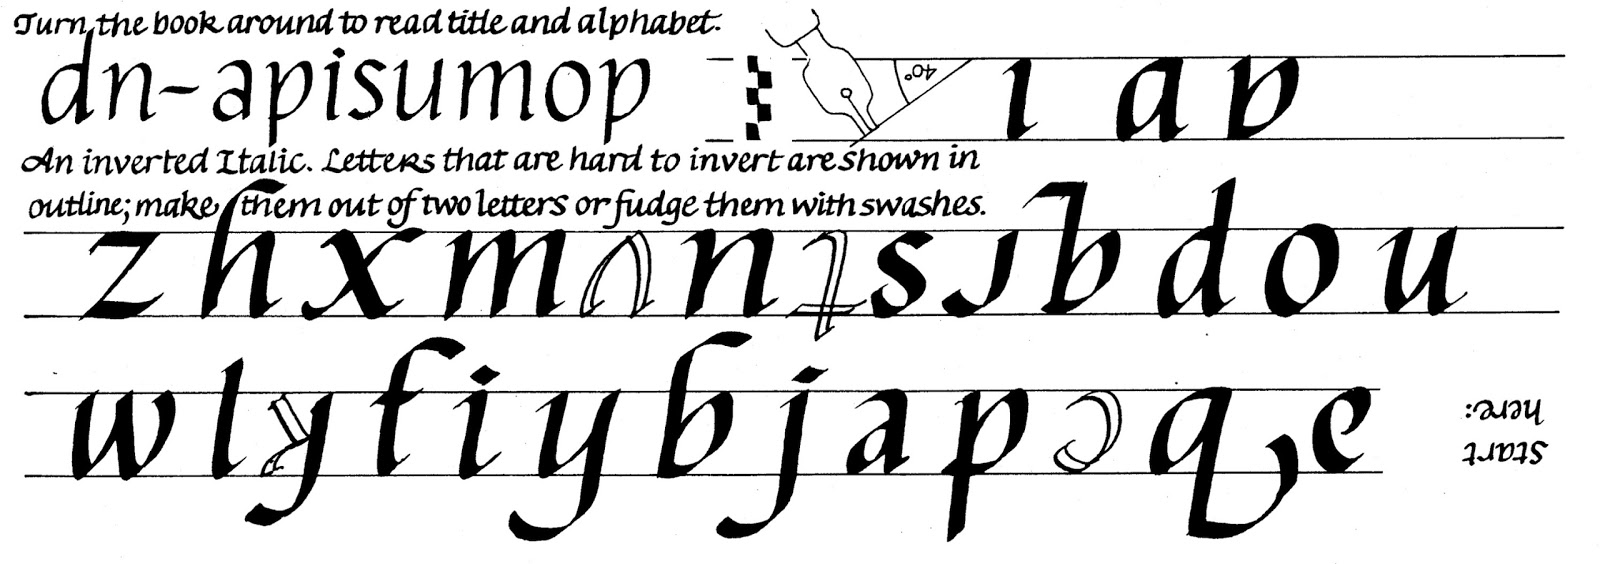 Turn the book around to read title and alphabet.
downside-up
40°
An inverted Italic. Letters that are hard to invert are shown in
outline; make them out of two letters or fudge them with swashes.
Start
here:
a b c d e f g h i j k l m
n o p q r s t u v w x y z